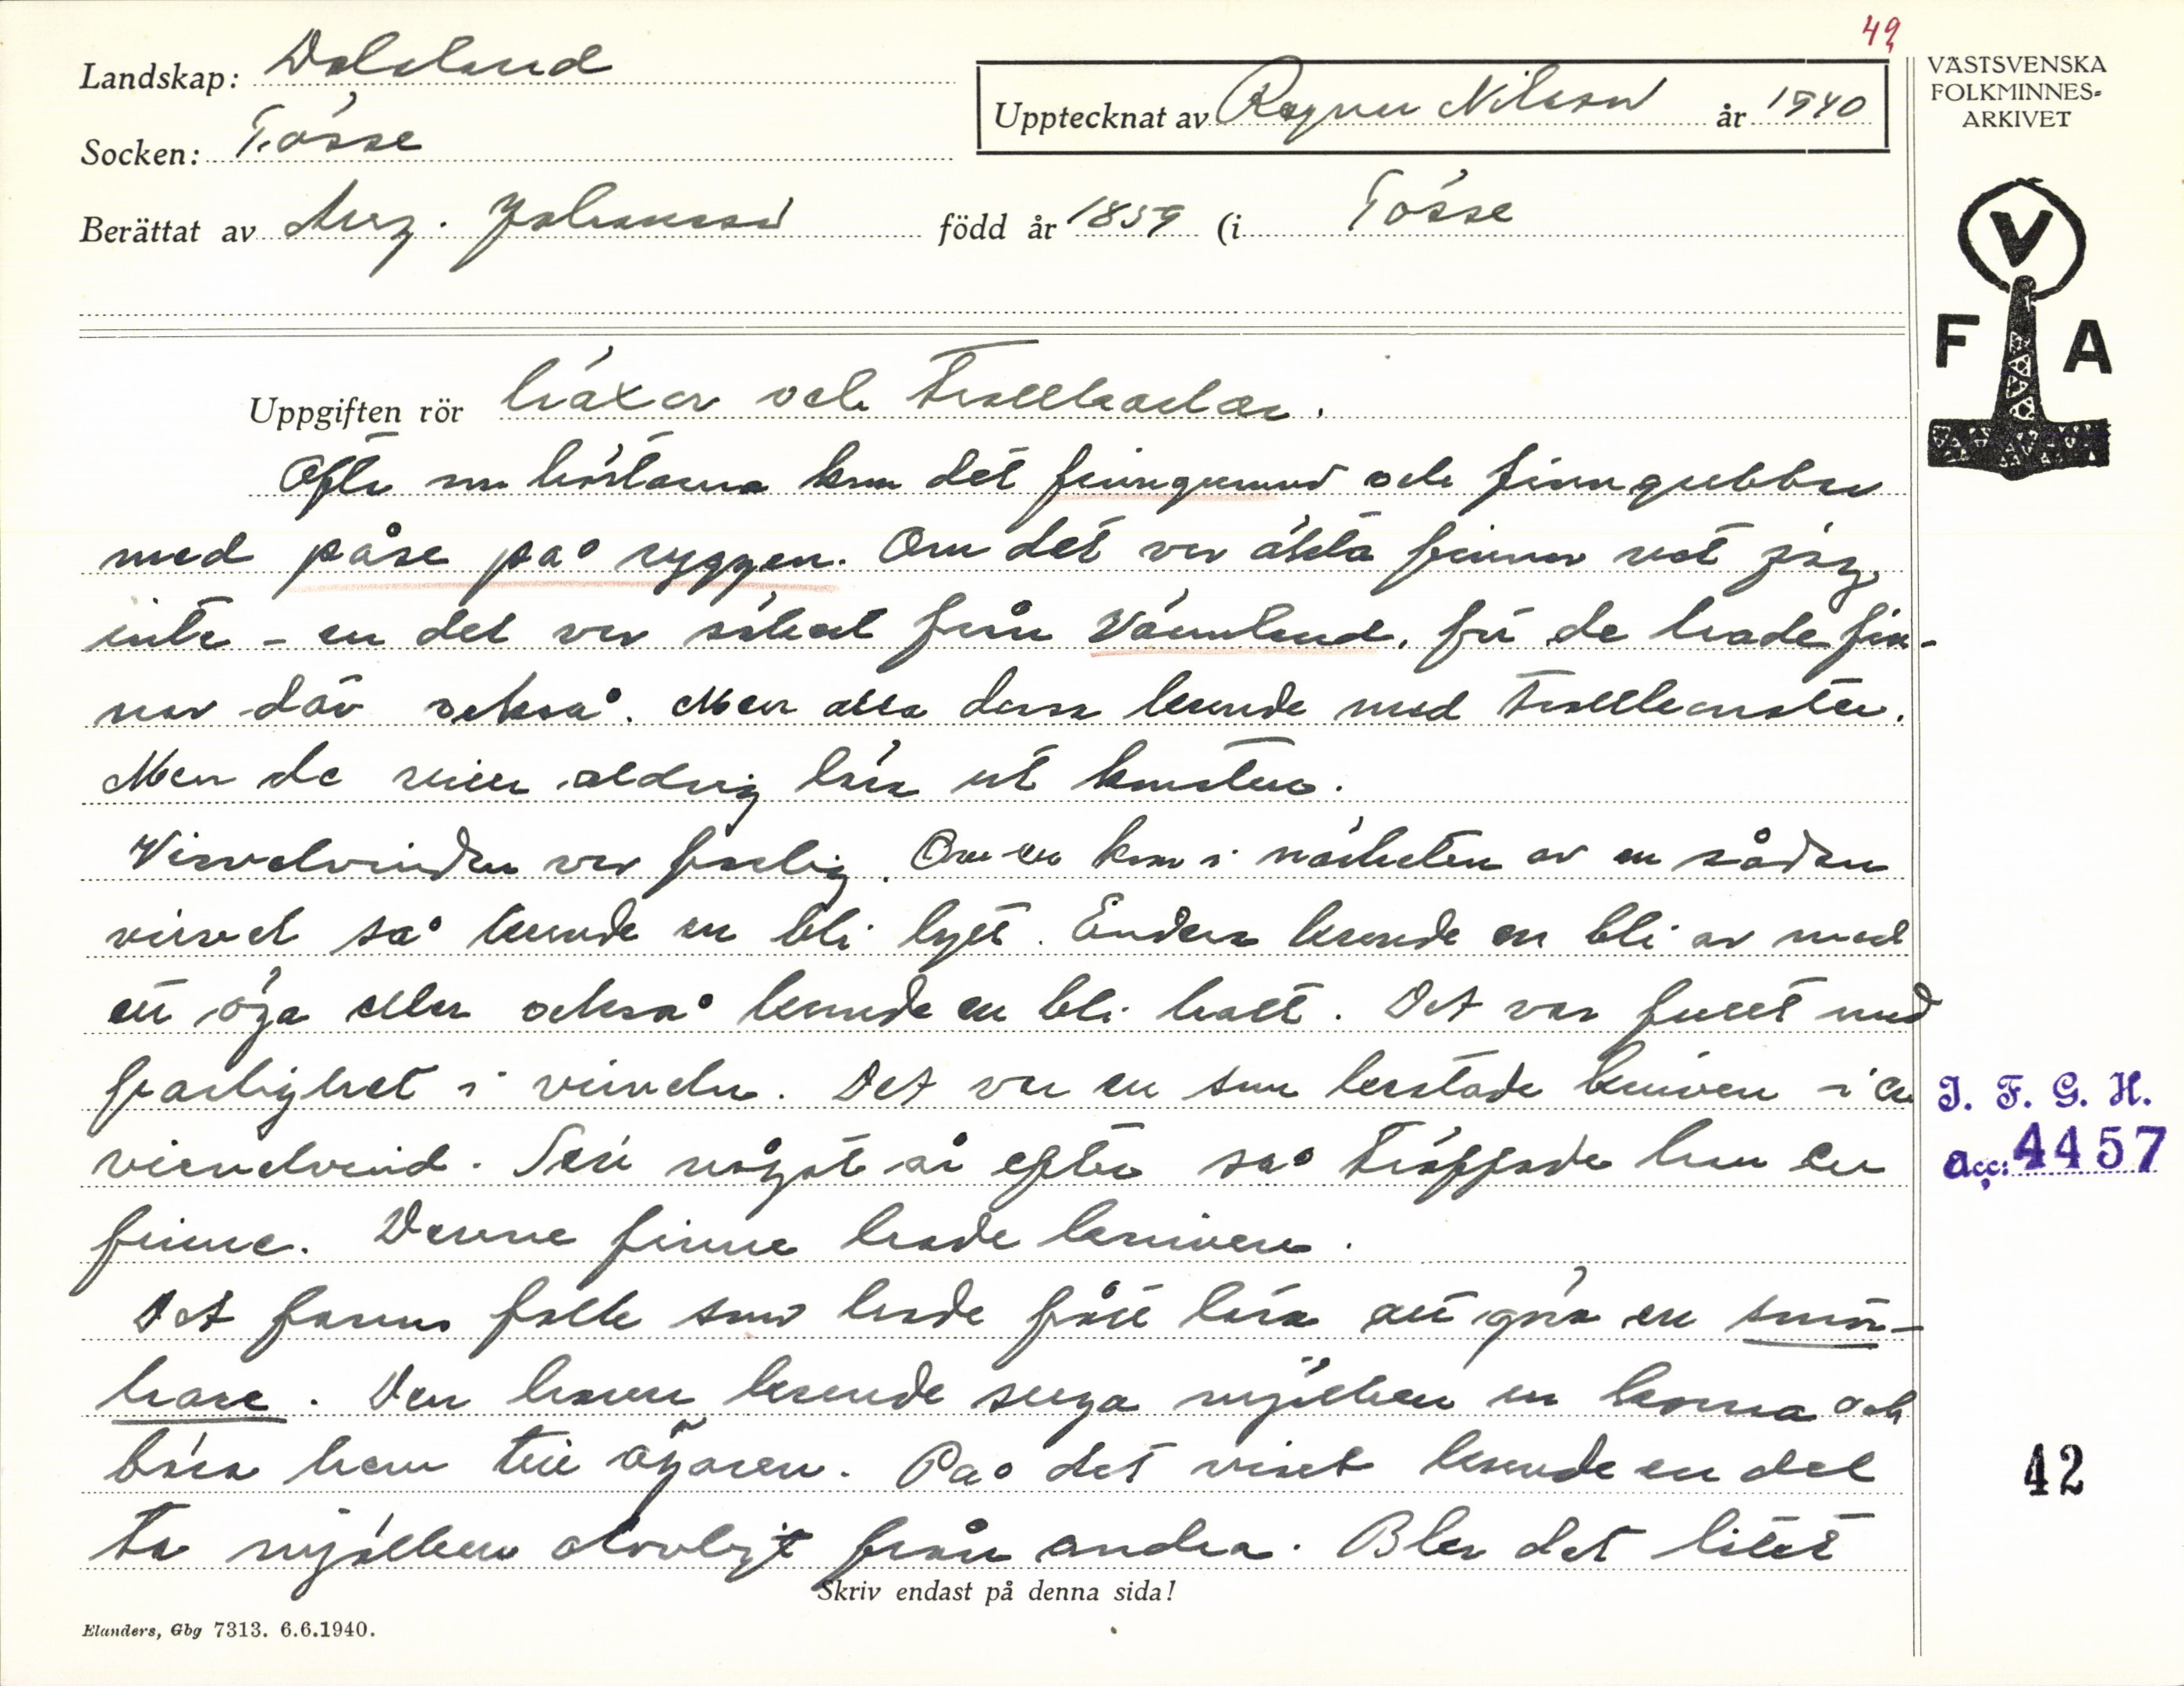 49
Landskap: Dalsland
Socken: Tösse
Upptecknat av Ragnar Nilsson år 1940
Berättat av Aug. Johansson född år 1859 (i Tösse
VÄSTSVENSKA
FOLKMINNES-
ARKIVET
V
F A
Uppgiften rör häxor och trollkarlar.
Ofta om höstarna kom det finngummor och finngubbar
med påse på ryggen. Om det var äkta finnar vet jag
inte - en del var säkert från Värmland, för de hade fin-
nar där också. Men alla dessa kunde med trollkonster.
Men de ville aldrig lära ut konsten.
Virvelvinden var farlig. Om en kom i närheten av en sådan
virvel så kunde en bli lytt. Endera kunde en bli av med
ett öga eller också kunde en bli halt. Det var fullt med
farlighet i virveln. Det var en som kastade kniven i en
virvelvind. Sen något år efter så träffade han en
finne. Denne finne hade kniven.
Det fanns folk som hade fått lära att göra en smör-
hare. Den haren kunde suga mjölken ur korna och
bära hem till ägaren. På det viset kunde en del
ta mjölken olovligt från andra. Blev det litet
Skriv endast på denna sida!
Elanders, Gbg 7313. 6.6.1940.
I. F. G. H.
acc: 4457
42